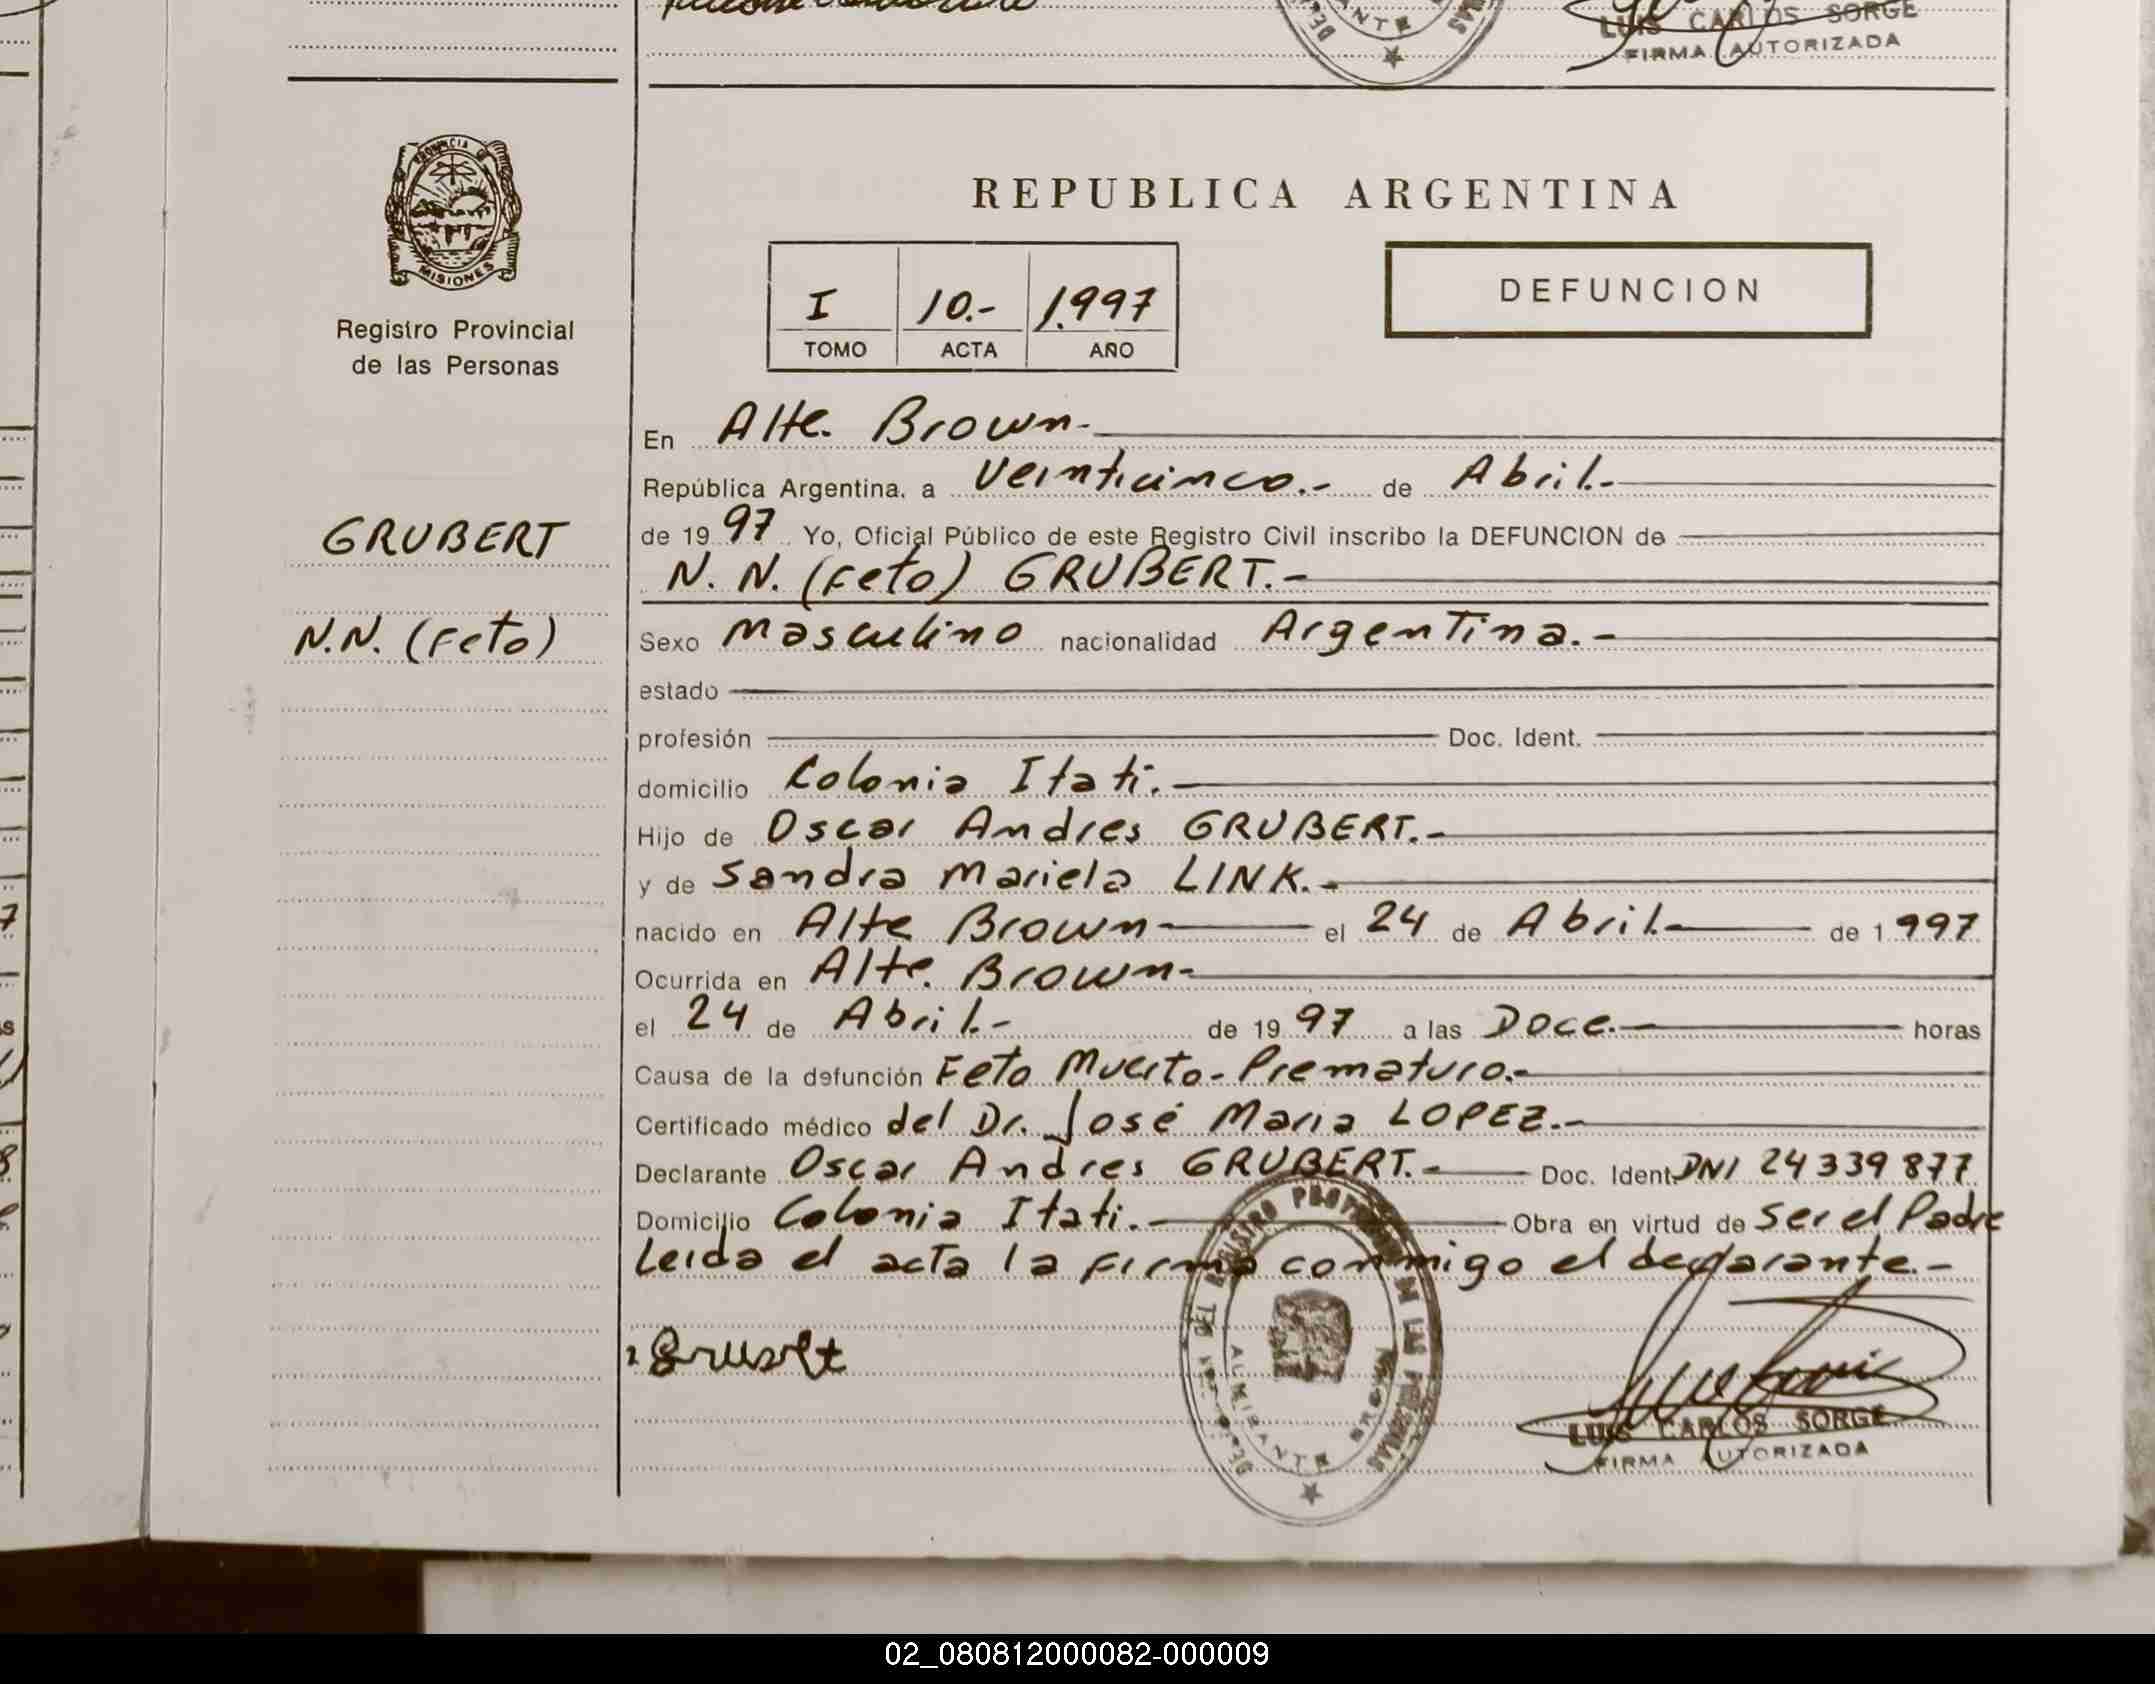 LUIS CARLOS SORGE
FIRMA AUTORIZADA
PROVINCIA DE
MISIONES
Registro Provincial
de las Personas
GRUBERT
N.N. (Feto)
REPUBLICA ARGENTINA
I 10.- 1.997
TOMO ACTA AÑO
DEFUNCION
En Alte. Brown.-
República Argentina, a Veinticinco.- de Abril.-
de 1997 Yo, Oficial Público de este Registro Civil inscribo la DEFUNCION de
N. N. (Feto) GRUBERT.-
Sexo Masculino nacionalidad Argentina.-
estado
profesión Doc. Ident.
domicilio Colonia Itati.-
Hijo de Oscar Andres GRUBERT.-
y de Sandra Mariela LINK.-
nacido en Alte Brown el 24 de Abril.- de 1997
Ocurrida en Alte. Brown-
el 24 de Abril.- de 1997 a las Doce.- horas
Causa de la defunción Feto Muerto - Prematuro.-
Certificado médico del Dr. José Maria LOPEZ.-
Declarante Oscar Andres GRUBERT.- Doc. Ident. DNI 24339877
Domicilio Colonia Itati.- Obra en virtud de Ser el Padre
Leida el acta la firma conmigo el declarante.-
LUIS CARLOS SORGE
FIRMA AUTORIZADA
02_080812000082-000009